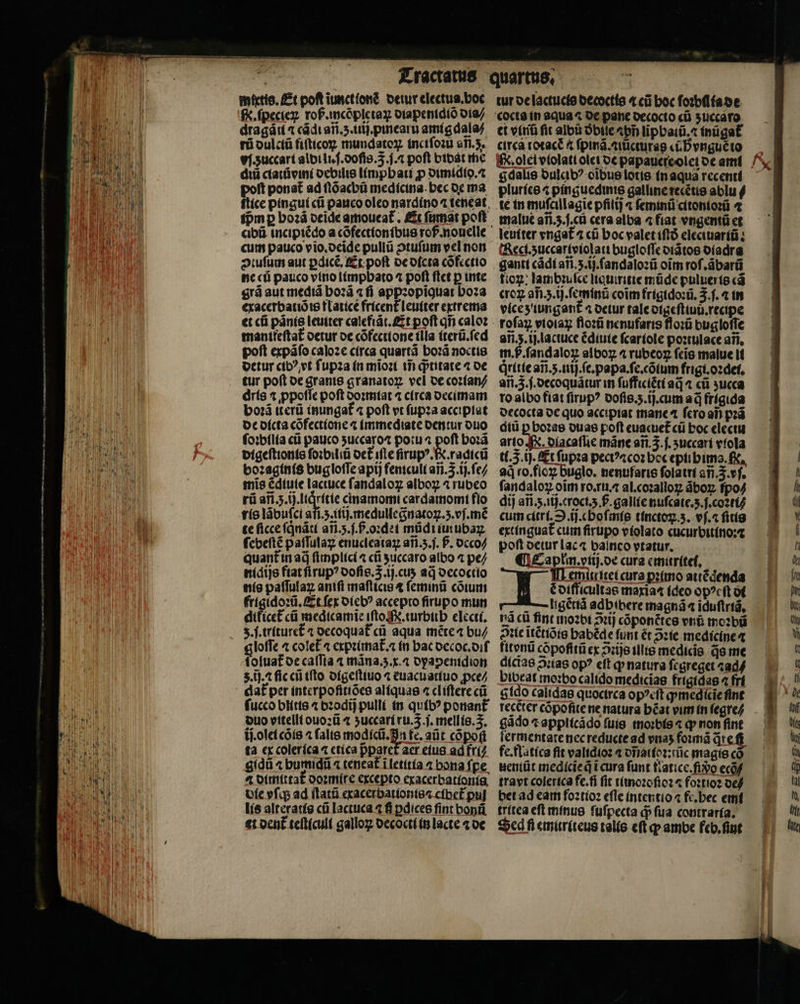 Tractatus quartus.
mixtis. Et post iunctionē detur electua. hoc
℞. specieꝝ ros. incōpletaꝝ diapenidiō dia⸗
dragāti ⁊ cādi añ.ʒ.iiij. pinearū amigdala⸗
rū dulciū fisticoꝝ mundatoꝝ incisoꝝ añ.ʒ.
vj. zuccari albi li.ſ. dosis.℥.j.⁊ post bibat me
post ponat᷑ ad stōachū medicina. hec de ma
stice pingui cū pauco oleo nardino ⁊ teneat
ip̄m ꝑ horā deide amoueat᷑. Et sumat post
cibū incipiēdo a cōfectionibus ros. nouelle
cum pauco vio. deide pullū ꝯtusum vel non
ꝯtusum aut ꝑdicē. Et post de dicta cōfectio
ne cū pauco vino limphato ⁊ post stet ꝑ inte
grā aut mediā horā ⁊ si appropīquat hora
exacerbatiōis flatice fricent᷑ leuiter extrema
et cū pānis leuiter calefiāt. Et post qn̄ calor
manifestat᷑ detur de cōfectione illa iterū. sed
post expāso calore circa quartā horā noctis
detur cibꝰ, vt supra in miori tn̄ q̄ntitate ⁊ de
tur post de granis granatoꝝ vel de corian⸗
dris ⁊ ꝓposse post dormiat ⁊ circa decimam
horā iterū inungat᷑ ⁊ post vt supra accipiat
de dicta cōfectione ⁊ immediate dentur duo
sorbilia cū pauco zuccaro⁊ potu ⁊ post horā
digestionis sorbiliū det᷑ iste sirupꝰ. ℞. radicū
boraginis buglosse apij feniculi añ.℥.ij. se⸗
mīs ēdiuie lactuce sandaloꝝ alboꝝ ⁊ rubeo
rū añ.ʒ.ij. liq̄ritie cinamomi cardamomi flo
quant᷑ in aq̄ simplici ⁊ cū zuccaro albo ⁊ pe⸗
nidijs fiat sirupꝰ dosis.℥.ij. cuȝ aq̄ decoctio
nis passulaꝝ anisi masticis ⁊ seminū cōium
frigidorū. Et sex diebꝰ accepto sirupo mun
dificet᷑ cū medicamīe isto ℞. turbith electi.
ʒ.ſ. triturēt᷑ ⁊ decoquat᷑ cū aqua mēte ⁊ bu⸗
glosse ⁊ colet᷑ ⁊ exprimat᷑.⁊ in hac decoc. dis
soluat᷑ de cassia ⁊ māna.ʒ.x.⁊ dyapenidion
ʒ.ij.⁊ sic cū isto digestiuo ⁊ euacuatiuo ꝓce⸗
dat᷑ per interpositiōes aliquas ⁊ clistere cū
succo blitis ⁊ brodij pulli in quibꝰ ponant᷑
duo vitelli ouorū ⁊ zuccari ru.℥.ſ. mellis.℥.
ij. olei cōis ⁊ salis modicū. In fe. aūt cōposi
ta ex colerica ⁊ etica p̄paret᷑ aer eius ad fri⸗
gidū ⁊ humidū ⁊ teneat᷑ ī letitia ⁊ bona spe
⁊ dimittat᷑ dormire excepto exacerbationis
die vsq̨ ad statū exacerbationis⁊ cibet᷑ pul
lis alteratis cū lactuca ⁊ si ꝑdices sint bonū
et dent᷑ testiculi galloꝝ decocti in lacte ⁊ de
tur de lactucis decoctis ⁊ cū hoc sorbilia de
cocta in aqua ⁊ de pane decocto cū zuccaro
circa toracē ⁊ spinā.
℞. olei violati olei de papauere olei de ami
gdalis dulcibꝰ oībus lotis in aqua recenti
pluries ⁊ pinguedinis galline recētis ablu⸗
te in muscillagie psilij ⁊ seminū citoniorū ⁊
malue añ.ʒ.ſ. cū cera alba ⁊ fiat vngentū et
leuiter vngat᷑ ⁊ cū hoc valet istd̄ electuariū:
Reci. zuccari violati buglosse diātos diadra
ganti cādi añ.ʒ.ſ. sandalorū oīm ros. ābarū
croꝝ añ.ʒ.ij. seminū coīm frigidorū.℥.ſ.⁊ in
vice ʒ iungant᷑ ⁊ detur tale digestiuū. recipe
rosaꝝ violaꝝ florū nenufaris florū buglosse
añ.ʒ.ij. lactuce ēdiuie scariole portulace añ.
m.ꝑ. sandaloꝝ alboꝝ ⁊ rubeoꝝ seīs malue li
q̄ritie añ.ʒ.iiij. se. papa. se. cōium frigi. ordei.
añ.℥.ſ. decoquātur in sufficiēti aq̄ ⁊ cū zucca
ro albo fiat sirupꝰ dosis.ʒ.ij. cum aq̄ frigida
decocta de quo accipiat mane ⁊ sero añ prā
diū ꝑ horas duas post euacuet᷑ cū hoc electu
ario. ℞. diacassie māne añ.℥.ſ. zuccari viola
ti.℥.ij. Et supra pectꝰ⁊ cor hoc epithima. ℞.
aq̄ ro. floꝝ buglo. nenufaris solatri añ.℥.vj.
sandaloꝝ oīm ro. ru.⁊ al. coralloꝝ ābor. spo⸗
extinguat᷑ cum sirupo violato cucurbitino:⁊
post detur lac ⁊ balneo vtatur.
¶ Caplm. viij. de cura emitritei.
N emitritei cura primo attēdenda
ē difficultas maxīa⁊ ideo oprꝰest di
ligētiā adhibere magnā ⁊ īdustriā,
nā cū sint morbi ꝯrij cōponētes vnū morbū
ꝯrie itētiōis habēde sunt et ꝯrie medicine ⁊
si tonū cōpositū ex ꝯrijs illis medicīs q̄s me
dicias ꝯrias opꝰ est ꝙ natura segreget ⁊ad⸗
hibeat morbo calido medicīas frigidas ⁊ fri
gido calidas quocirca opꝰest ꝙ medicīe sint
recēter cōposite ne natura hēat vim in segre⸗
gādo ⁊ applicādo suis morbis ⁊ ꝙ non sint
fermentate nec reducte ad vnaȝ formā q̄re si
fe. flatica sit validior ⁊ dn̄atior: tūc magis cō
ueniūt medicīe q̄ ī cura sunt flatice. si vo ecō⸗
trayt colerica fe. si sit timorosior ⁊ fortior de⸗
bet ad eam fortior esse intentio ⁊ fe. hec emi
tritea est minus suspecta q̄ sua contraria.
Sed si emitriteus talis est ꝙ ambe feb. sint